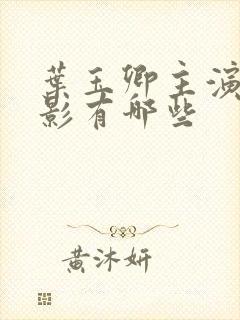 葉玉卿主演
影有哪些
黃沐妍